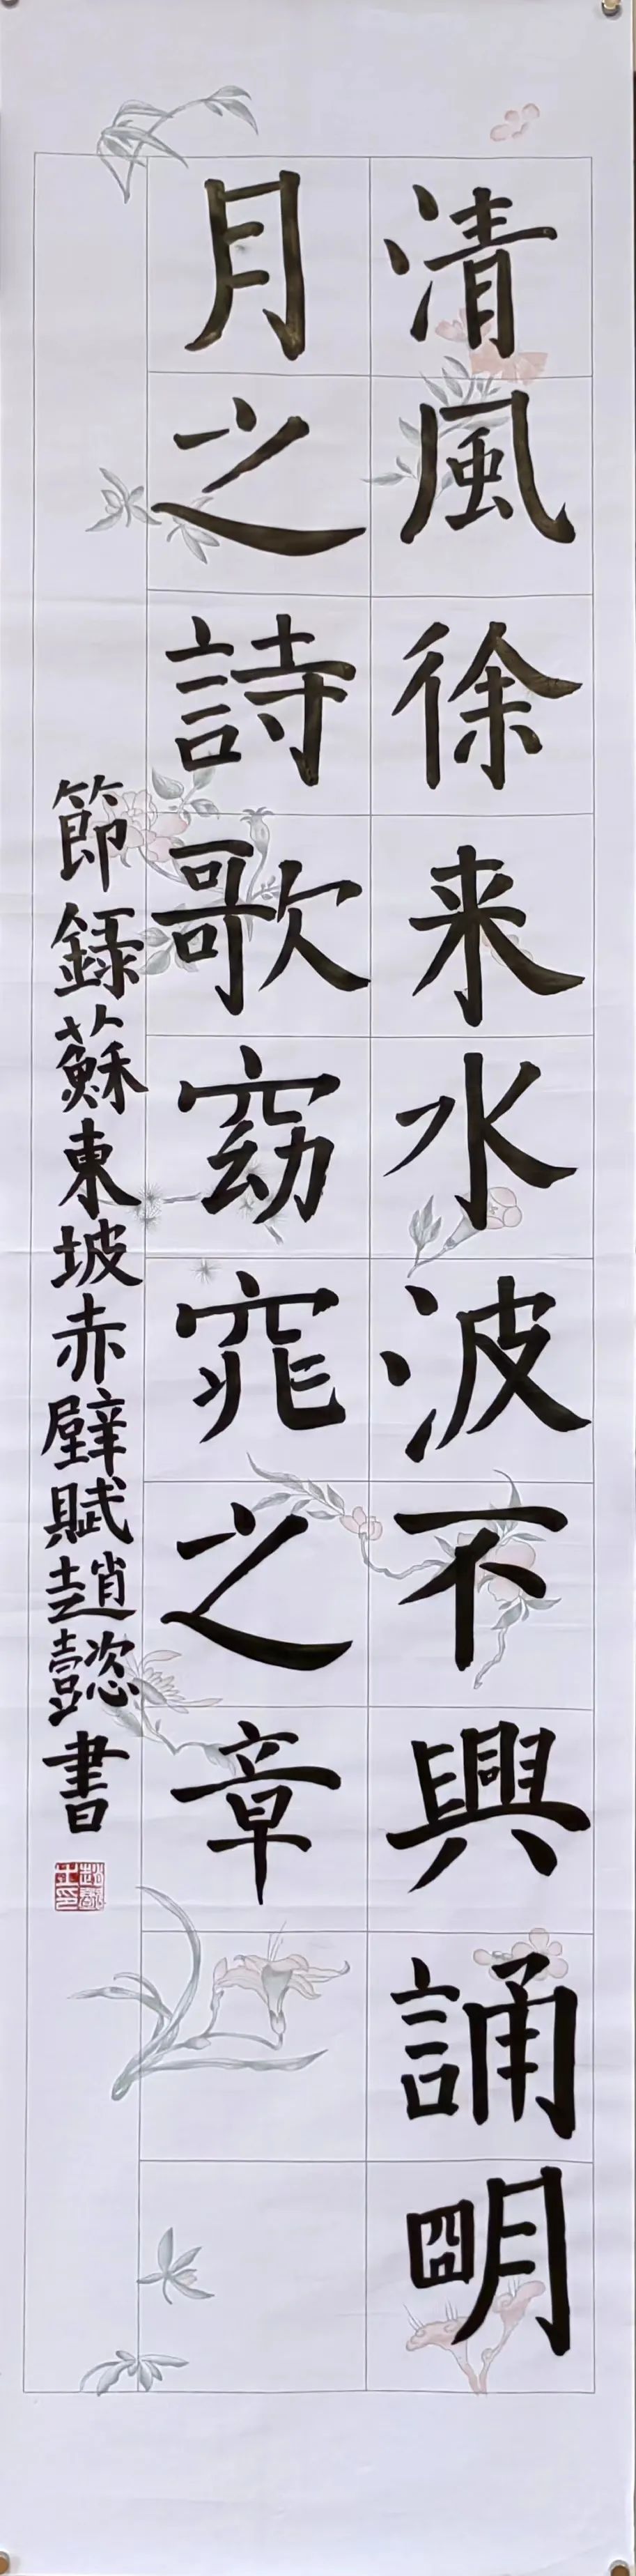 清風徐来水波不興誦朙
月之詩歌窈窕之章
節録蘇東坡赤壁賦趙懿書